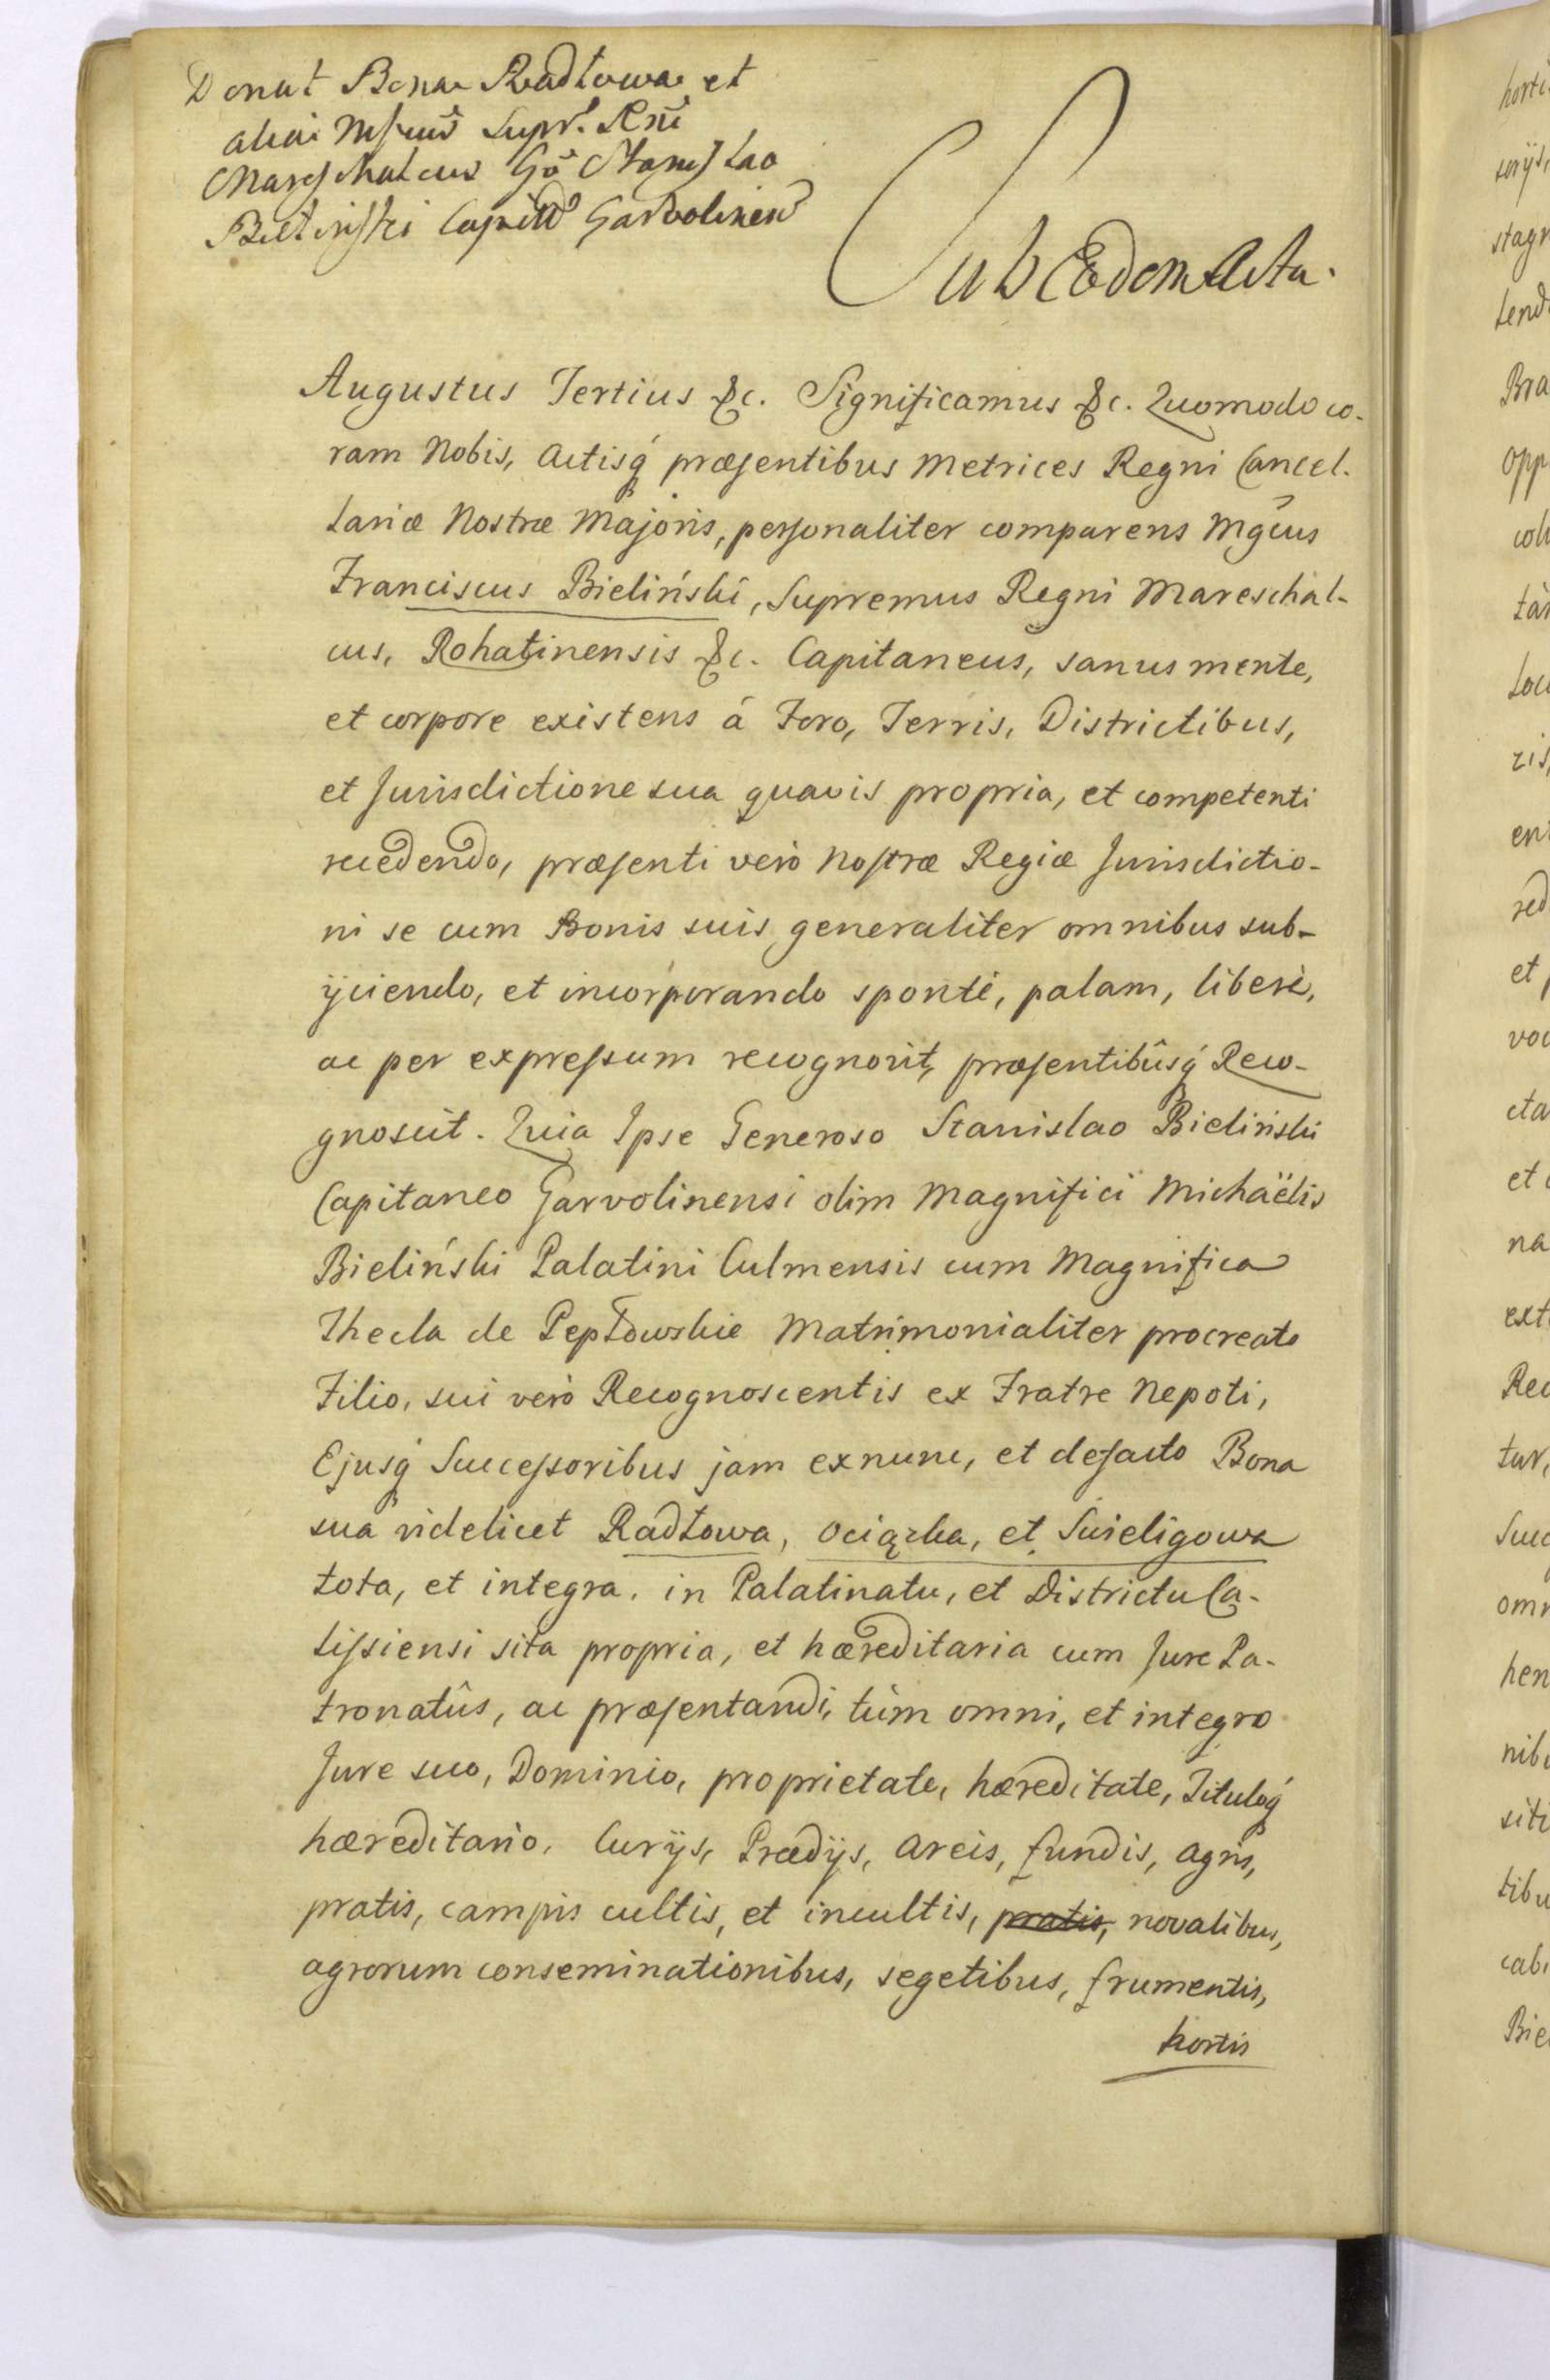 Donat Bona Radłowa et
alia Mfcus Supr. Rni
Mareschalcus Gō Stanislao
Bieliński Capitō Garvolinen
Sub Eadem Acta.
Augustus Tertius &c. Significamus &c. Quomodo co-
ram Nobis, Actisq́ præsentibus Metrices Regni Cancel-
lariæ Nostræ Majoris, personaliter comparens Mgcus
Franciscus Bieliński, Supremus Regni Mareschal-
cus, Rohatinensis &c. Capitaneus, sanus mente,
et corpore existens á Foro, Terris, Districtibus,
et Jurisdictione sua quavis propria, et competenti
recedendo, præsenti verò Nostræ Regiæ Jurisdictio-
ni se cum Bonis suis generaliter omnibus sub-
ijciendo, et incorporando spontè, palam, liberè,
ac per expressum recognovit, præsentibûsq́ Reco-
gnoscit. Quia Ipse Generoso Stanislao Bieliński
Capitaneo Garvolinensi olim Magnifici Michaëlis
Bieliński Palatini Culmensis cum Magnifica
Thecla de Pepłowskie Matrimonialiter procreato
Filio, sui verò Recognoscentis ex Fratre Nepoti,
Ejusq́ Successoribus jam exnunc, et defacto Bona
sua videlicet Radłowa, Ociąska, et Swieligowa
tota, et integra, in Palatinatu, et Districtu Ca-
lissiensi sita propria, et hæreditaria cum Jure Pa-
tronatûs, ac præsentandi, tùm omni, et integro
Jure suo, Dominio, proprietate, hæreditate, Tituloq́
hæreditario, Curijs, Prædijs, Areis, fundis, agris,
pratis, campis cultis, et incultis, pratis, novalibus,
agrorum conseminationibus, segetibus, frumentis,
hortis